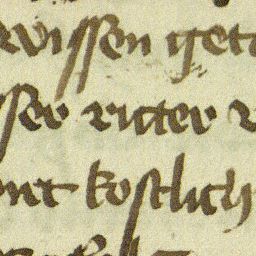 wissen get
ser ritter
nt kostlich